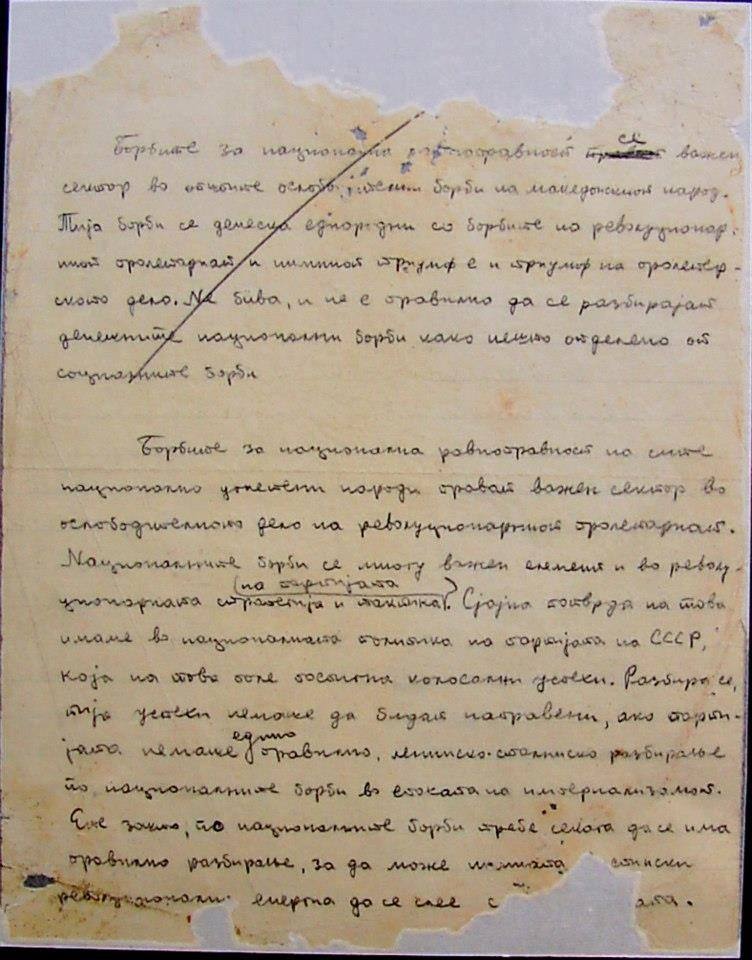 Борбите за национална равноправност се важен
сектор во општите ослободителни борби на македонскиот народ.
Тија борби се денеска еднородни со борбите на револуционар-
ниот пролетариат и нимниот триумф е и триумф на пролетер-
ското дело. Не бива, и не е правилно да се разбирајат
денешните национални борби како нешто отделено от
социалните борби
Борбите за национална равноправност на сите
национално угнетени народи прават важен сектор во
ослободителното дело на револуционарниот пролетариат.
Националните борби се многу важен елемент и во револу-
(на партијата)
ционарната стратегија и тактика. Сјајна потврда на това
имаме во националната политика на партијата на СССР,
која на това поле постигна колосални успеси. Разбира се,
тија успеси немаше да бидат направени, ако парти-
јата немаше едно правилно, ленинско-сталинско разбирање
по националните борби во епоката на империализамот.
Ете зашто, по националните борби требе секога да се има
правилно разбирање, за да може нимната
револуционарна енергиа да се слее с